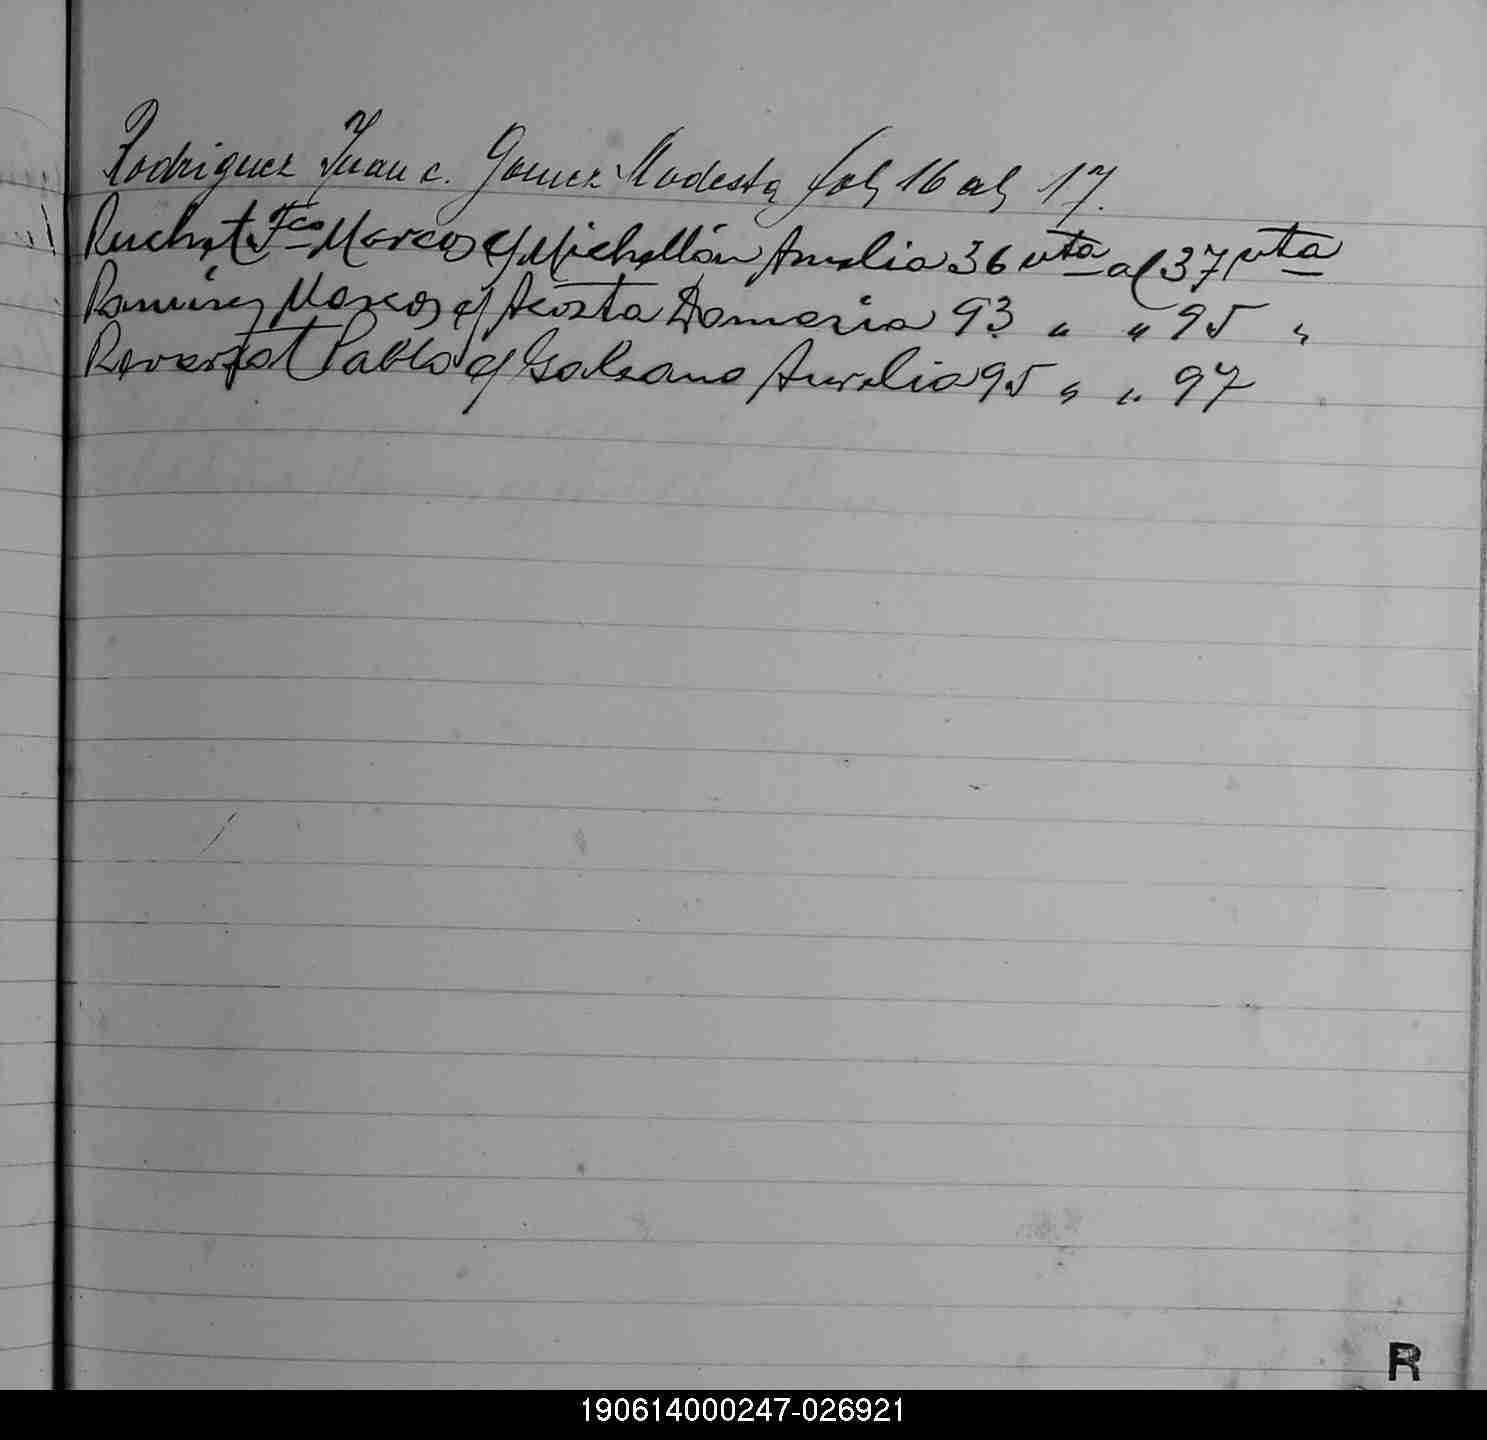 Rodriguez Juan c. Gomez Modesta fol 16 al 17.
Ruchat Fco Marcos c/ Michellón Amelia 36 vta al 37 vta
Ramírez Marcos c/ Acosta Damasia 93 " " 95 "
Reverzat Pablo c/ Galeano Aurelia 95 " " 97
R
190614000247-026921